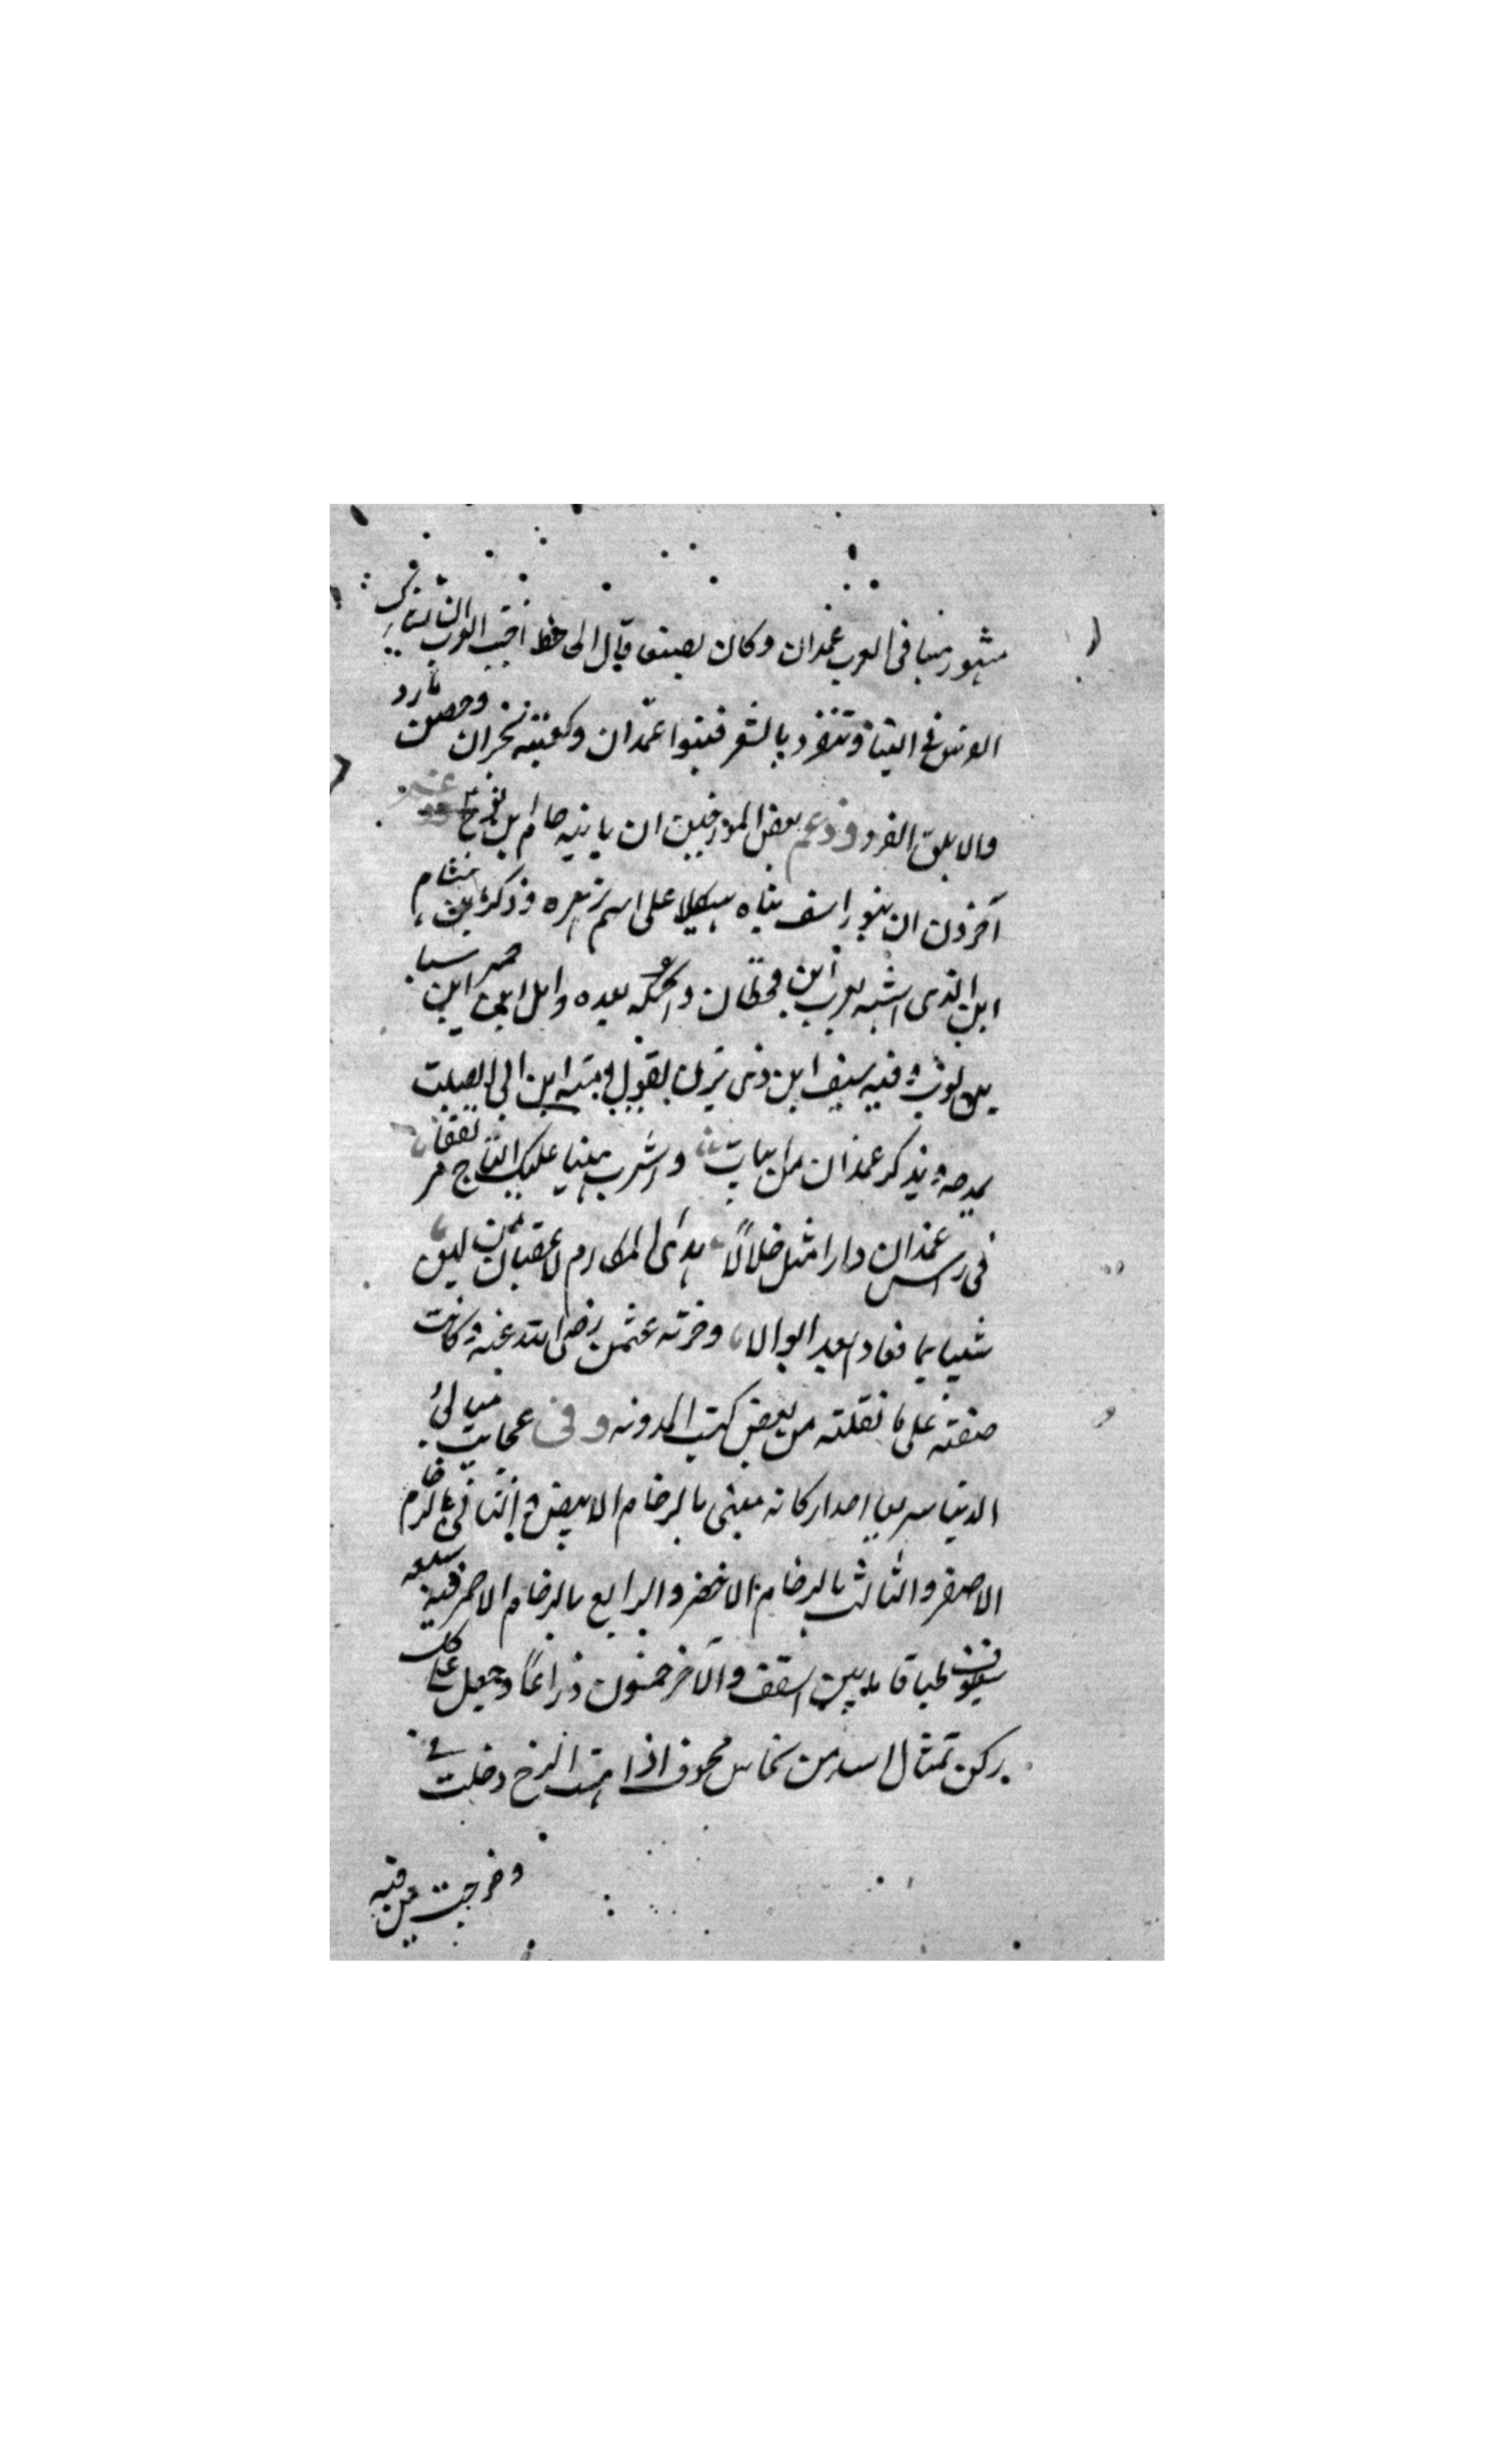 مشهور منبا فى العرب غمدان وكان بصنعا قال الجاحظ احبت العرب ان تشارك
الفرس فى البنا وتنفرد بالشعر فبنوا غمدان وكعبته نجران وحصن مارد
والابلق الفرد وزعم بعض المورخين ان بانيه حام بن نوح
آخرون ان بيوراسف بناه هيكلا على اسم زهره وذكر ابن هشام
ابن الذى اسسه يعرب ابن قحطان واكمله بعده وايل ابن حمير ابن سبا
بن يعرب وفيه سيف ابن ذى يزن يقول اميه ابن ابى الصلت
يمدحه ويذكر غمدان من ابيات واشرب هنيا عليك التاج مرتفقا
فى راس غمدان دارا منك حلالا هذى المكارم لا قعبان من لبن
شيبا بما فعادا بعد ابوالا وخربه عثمن رضى الله عنه وكانت
صفته على ما نقلته من بعض كتب المدونه وفى عجايب مبانى
الدنيا مربعا احد اركانه مبنى بالرخام الابيض والثانى بالرخام
الاصفر والثالث بالرخام الاخضر والرابع بالرخام الاحمر فيه سبعه
سقوف طباقا ما بين السقف والآخر خمسون ذراعا وجعل على كل
ركن تمثال اسد من نحاس مجوف اذا هبت الريح دخلت فى
وخرجت من فيه